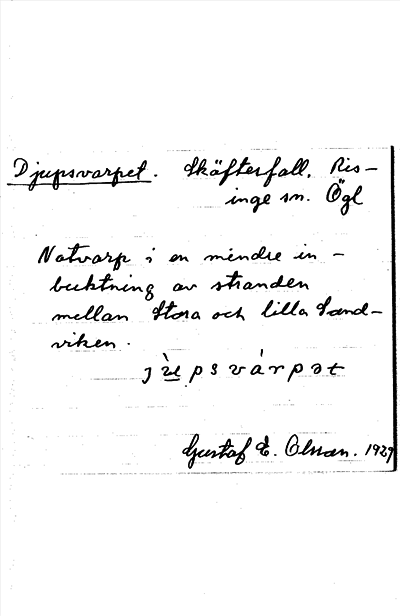 Djupsvarpet. Skäftesfall, Ris-
inge sn. Ögl
Notvarp i en mindre in-
buktning av stranden
mellan Stora och lilla Sand-
viken.
jùpsvárpət
Gustaf E. Olsson. 1929